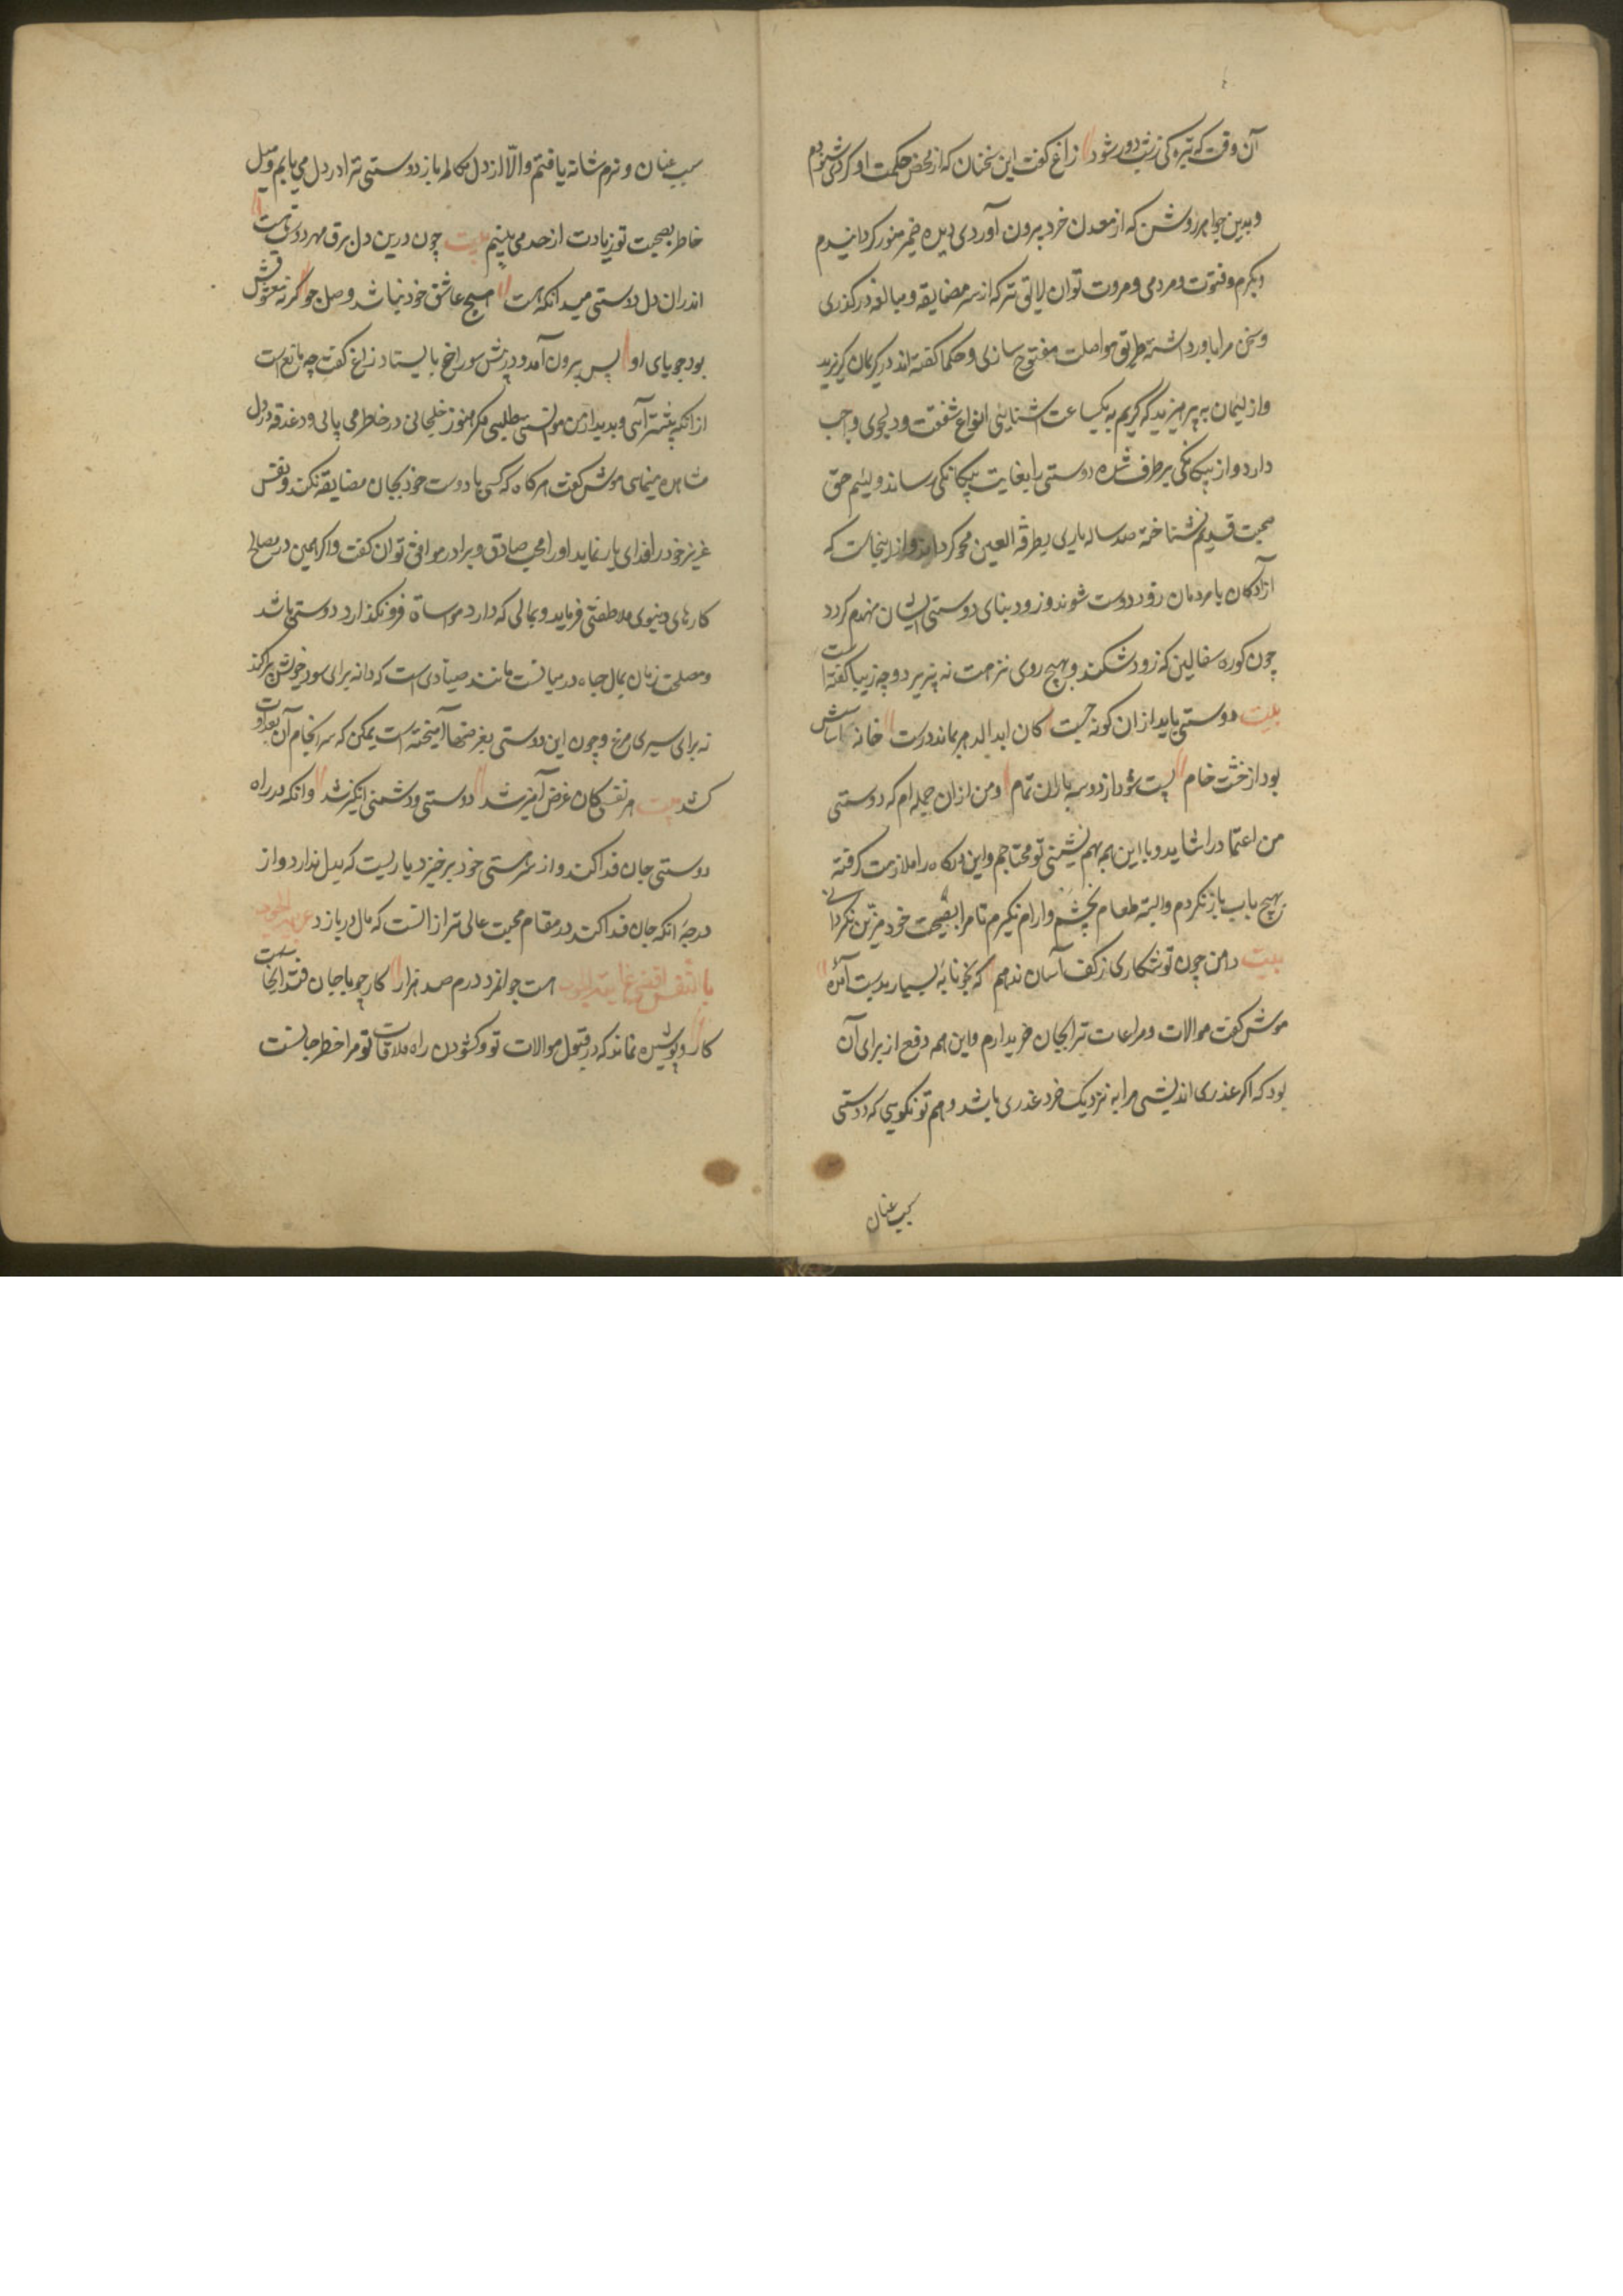 آن وقت که تیره کی زشت دور شود زاغ گفت این سخنان که از محض حکمت او کردی شنودم
و بدین جواهر روشن که از معدن خرد بیرون آوردی دیده ضمیر منور کردانیدم
بکرم و فتوت و مردمی و مروت توان لایق تر که از سر مضایقه و مبالغه درکذری
و سخن مرا باور داشته طریق مواصلت مفتوح سازی و حکما کفته اند در کریمان کریزید
و از لئیمان به پرهیزید که کریم به یکساعت اشنایئی انواع شفقت و دلجوی واجب
دارد و از بیکانکی برطرف شده دوستی را بغایت یکانکی رساند و لئیم حق
صحبت قدیم نشناخته صد ساله یاری بطرفة العین محو کرداند و از اینجاست که
ازادکان با مردمان زود دوست شوند و زود بنای دوستی ایشان منهدم کردد
چون کوزه سفالین که زود شکند و بهیچ روی مرمت نه پزیرد و چه زیبا کفته است
بیت دوستی باید ازان کونه جست کان ابد الدهر بماند درست خانه که اساسش
بود از خشت خام پست شود از دو سه باران تمام و من ازان جمله ام که دوستی
من اعتماد را شاید و با این همه بهم نشینی تو محتاجم و این درکاه را ملازمت کرفته
بهیچ باب باز نکردم و البته طعام نچشم و ارام نکیرم تا مرا بصحبت خود مزین نکردانی
بیت دامن چون تو شکاری ز کف آسان ندهم که بخونابه بسیار بدست آمده
موش کفت موالات و مراعات ترا بجان خریدارم و این همه دفع از برای آن
بود که اکر عذری اندیشی مرا به نزدیک خرد عذری باشد و هم تو نکویی که دوستی
سبب عنان
سبب عنان و نرم شانه یافتم والا از دل مکالمه باز دوستی ترا در دل می یابم و میل
خاطر بصحبت تو زیادت از حد می بینم بیت چون درین دل برق مهر دوست جست
اندران دل دوستی میدانکه هست هیچ عاشق خود نباشد وصل جو کر نه معشوقش
بود جویای او پس بیرون آمد و در پیش سوراخ بایستاد زاغ کفت چه مانع است
از انکه پیشتر آئی و بدیدار من موانست طلبی مکر هنوز خلجانی در خاطر می یابی و دغدغه در دل
مشاهده مینمای موش کفت هرکاه که کسی با دوست خود بجان مضایقه نکند و نفس
عزیز خود را فدای یار نماید او را محب صادق و برادر موافق توان کفت و اکر همین در مصالح
کارهای دنیوی ملاطفتی فرماید و بمالی که دارد مواساة فرو نکذارد دوستی باشد
و مصلحت زمان بمال جاه در میانست مانند صیادی است که دانه برای سود خویش پراکند
نه برای سیری مرغ و چون این دوستی بغرضها آمیخته است یمکن که سرانجام آن بعداوت
کشد بیت هر نفسی کان غرض آمیز شد دوستی و دشمنی انکیز شد و انکه در راه
دوستی جان فدا کند و از سر هستی خود برخیزد یاریست که بدل ندارد و از
درجه انکه جان فدا کند در مقام محبت عالی تر از انست که مال در بازد ع والجود
بالنفس اقصی غایة الجود هست جوانمرد درم صد هزار کار چو با جان فتد انجاست
کار و پوشیده نماند که در قبول موالات تو و کشودن راه ملاقات تو مرا خطر جانست